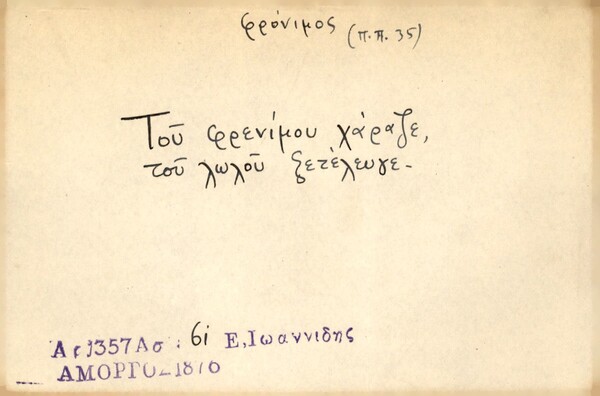 φρόνιμος (π.π. 35)
Τοῦ φρενίμου χάραζε,
τοῦ λωλοῦ ξετέλευγε.
Αρ 1357 Ασ: 61 Ε. Ιωαννιδης
ΑΜΟΡΓΟΣ 1876